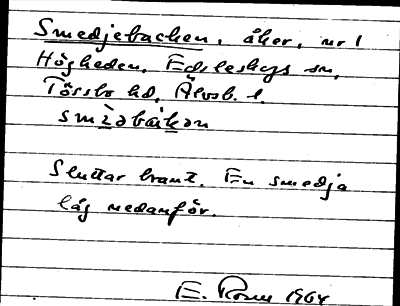 Smedjebacken, åker, nr 1
Högheden, Edsleskogs sn,
Tössbo hd, Älvsb. l.
smèdbakən
Sluttar brant. En smedja
låg nedanför.
E. 1964